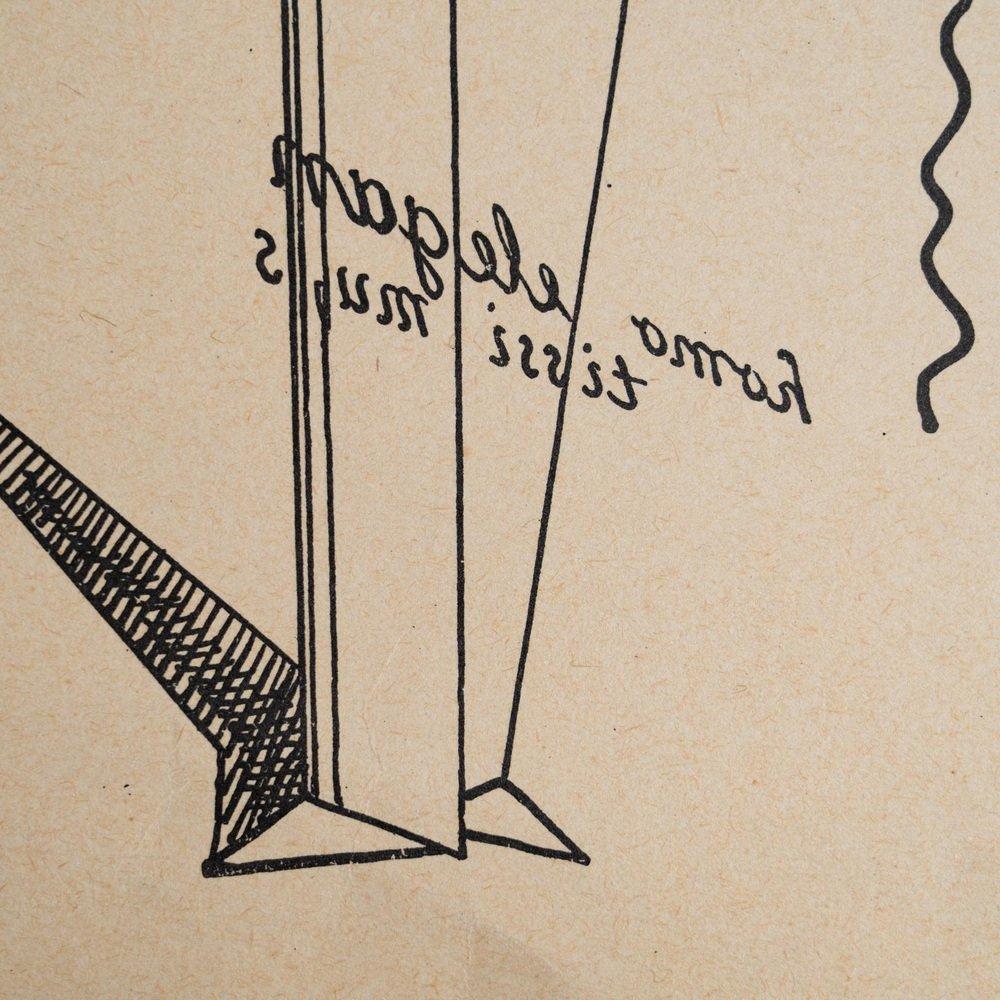 homo elegan
tissi mus